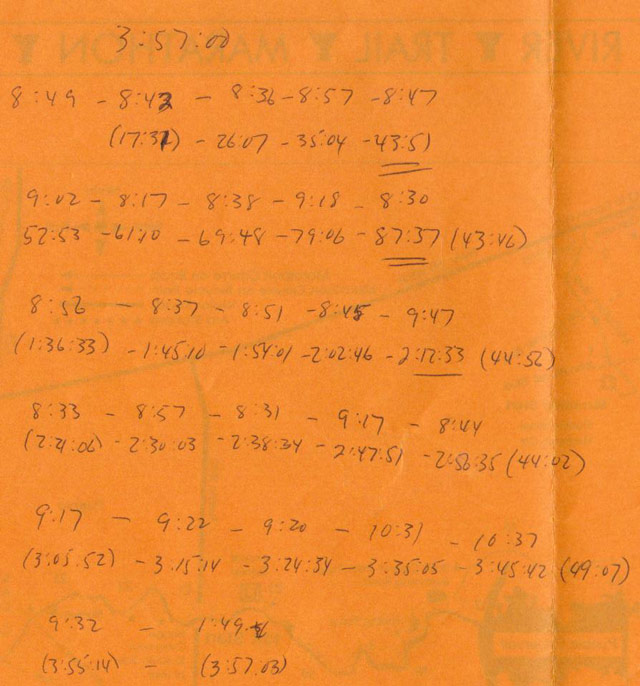 RIVER TRAIL MARATHON
3:57:00
8:49 - 8:42 - 8:36 - 8:57 - 8:47
(17:31) - 26:07 - 35:04 - 43:51
9:02 - 8:17 - 8:38 - 9:18 - 8:30
52:53 - 61:10 - 69:48 - 79:06 - 87:37 (43:46)
8:56 - 8:37 - 8:51 - 8:45 - 9:47
(1:36:33) - 1:45:10 - 1:54:01 - 2:02:46 - 2:12:33 (44:56)
8:33 - 8:57 - 8:31 - 9:17 - 8:44
(2:21:06) - 2:30:03 - 2:38:34 - 2:47:51 - 2:56:35 (44:02)
9:17 - 9:22 - 9:20 - 10:31 - 10:37
(3:05:52) - 3:15:14 - 3:24:34 - 3:35:05 - 3:45:42 (49:07)
9:32 - 1:49
(3:55:14) - (3:57:03)